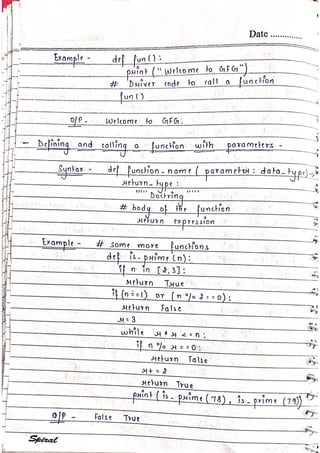 Date ............
Example - def fun():
print("Welcome to GFG")
# Driver code to call a function
fun()
O/P - Welcome to GFG.
- Defining and calling a function with parameters -
Syntax - def function-name (parameter: data_type) ->
return_type:
""""" Doctring """""
# body of the function
return expression
Example - # some more functions
def is_prime(n):
if n in [2,3]:
return True
if (n==1) or (n%2==0):
return False
r=3
while r*r<=n:
if n%r==0:
return False
r+=2
return True
print(is_prime(78), is_prime(79))
O/P - False True
Spiral